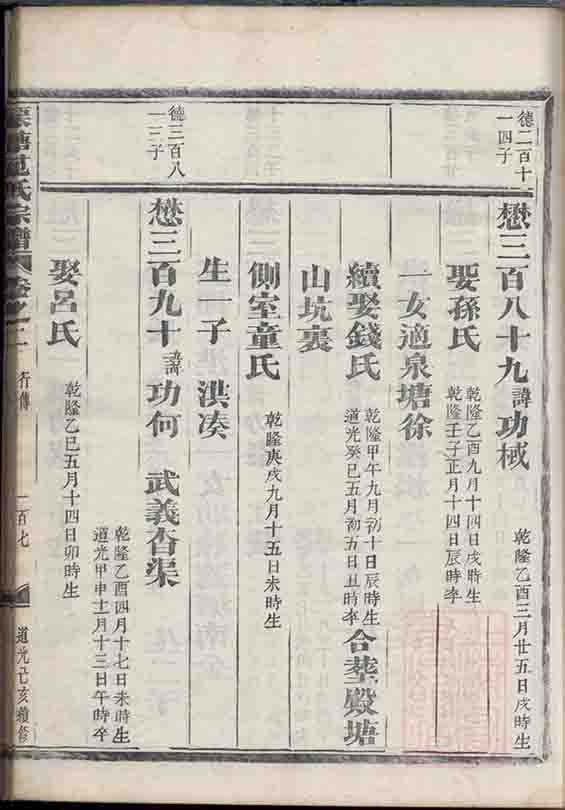 德二百十一
一四子
懋三百八十九諱功棫
乾隆乙酉三月廿五日戌時生
娶孫氏
乾隆乙酉九月十四日戌時生
乾隆壬子正月十四日辰時卒
一女適泉塘徐
續娶錢氏
乾隆甲午九月初十日辰時生
道光癸巳五月初五日丑時卒
合塟殿塘
山坑裏
側室童氏
乾隆庚戌九月十五日未時生
生一子 洪凑
德三百八
一三子
懋三百九十諱功何 武義杳渠
乾隆乙酉四月十七日未時生
道光甲申十一月十三日午時卒
娶呂氏
乾隆乙巳五月十四日卯時生
范氏宗譜
卷之二
行傳
一百七
道光己亥續修